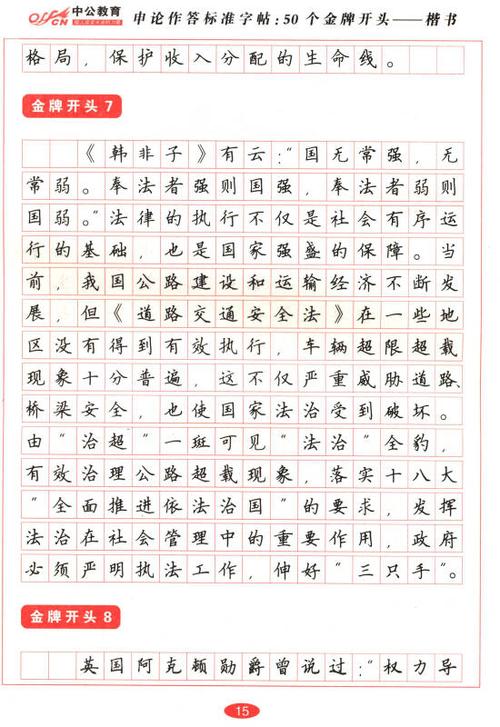 OFFCN 中公教育 申论作答标准字帖:50个金牌开头——楷书
格局，保护收入分配的生命线。
金牌开头7
《韩非子》有云:“国无常强，无
常弱。奉法者强则国强，奉法者弱则
国弱。”法律的执行不仅是社会有序运
行的基础，也是国家强盛的保障。当
前，我国公路建设和运输经济不断发
展，但《道路交通安全法》在一些地
区没有得到有效执行，车辆超限超载
现象十分普遍，这不仅严重威胁道路、
桥梁安全，也使国家法治受到破坏。
由“治超”一斑可见“法治”全豹，
有效治理公路超载现象，落实十八大
“全面推进依法治国”的要求，发挥
法治在社会管理中的重要作用，政府
必须严明执法工作，伸好“三只手”。
金牌开头8
英国阿克顿勋爵曾说过:“权力导
15